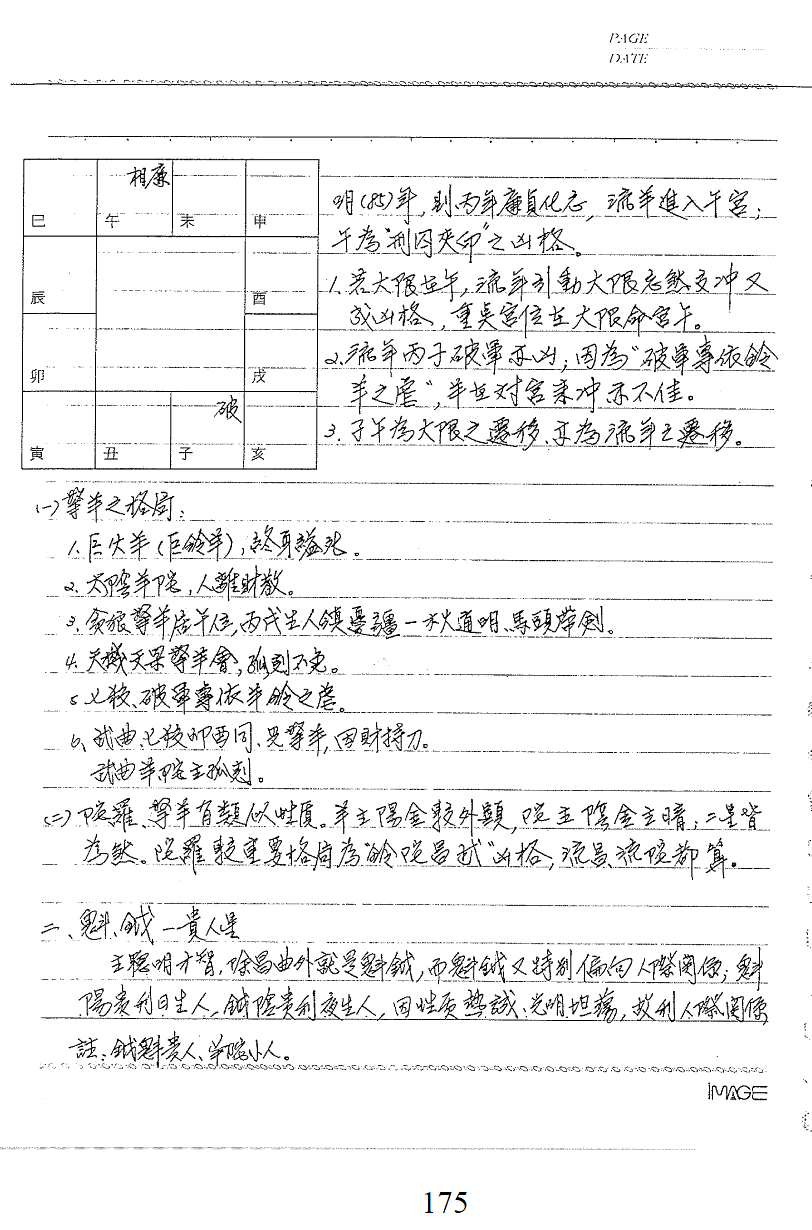 PAGE
DATE
相廉
巳 午 未 申
辰 酉
卯 戌
破
寅 丑 子 亥
明(85)年,則丙年廉貞化忌,流羊進入午宮;
午為"刑囚夾印"之凶格。
1.若大限在午,流年引動大限忌然交冲又
成凶格,重點宮位在大限命宮午。
2.流年丙子破軍亦凶;因為"破軍專依鈴
羊之虐",羊在对宮來冲亦不佳。
3.子午為大限之遷移、亦為流年之遷移。
(一)擎羊之格局:
1.巨火羊(巨鈴羊),終身縊死。
2.太陰羊陀,人離財散。
3.貪狼擎羊居午位,丙戊生人鎮憂疆-水火通明、馬頭帶劍。
4.天機天梁擎羊會,孤剋不免。
5.七殺、破軍專依羊鈴之虐。
6、武曲、七殺卯酉同、見擎羊,因財持刀。
武曲羊陀主孤剋。
(二)陀羅、擎羊有類似性质。羊主陽金較外顯,陀主陰金主暗;二星皆
為然。陀羅較重要格局為"鈴陀昌武"凶格,流昌、流陀都算。
二、魁、鉞-貴人星
主聰明才智,除昌曲外就是魁鉞,而魁鉞又特別偏向人際関係;魁
陽貴利日生人,鉞陰貴利夜生人,因性质熱誠、光明坦蕩,故利人際関係
註:鉞魁貴人、羊陀小人。
IMAGE
175